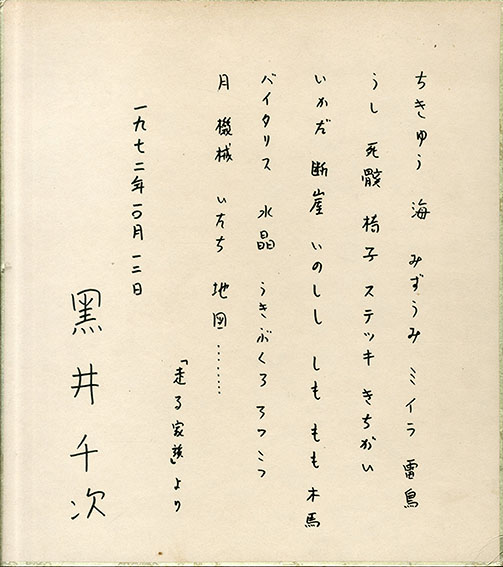 ちきゅう 海 みずうみ ミイラ 雷鳥
うし 死骸 椅子 ステッキ きちがい
いかだ 断崖 いのしし しも もも 木馬
バイタリス 水晶 うきぶくろ ろっこつ
月 機械 いたち 地図………
「走る家族」より
一九七二年一〇月一二日
黑井千次